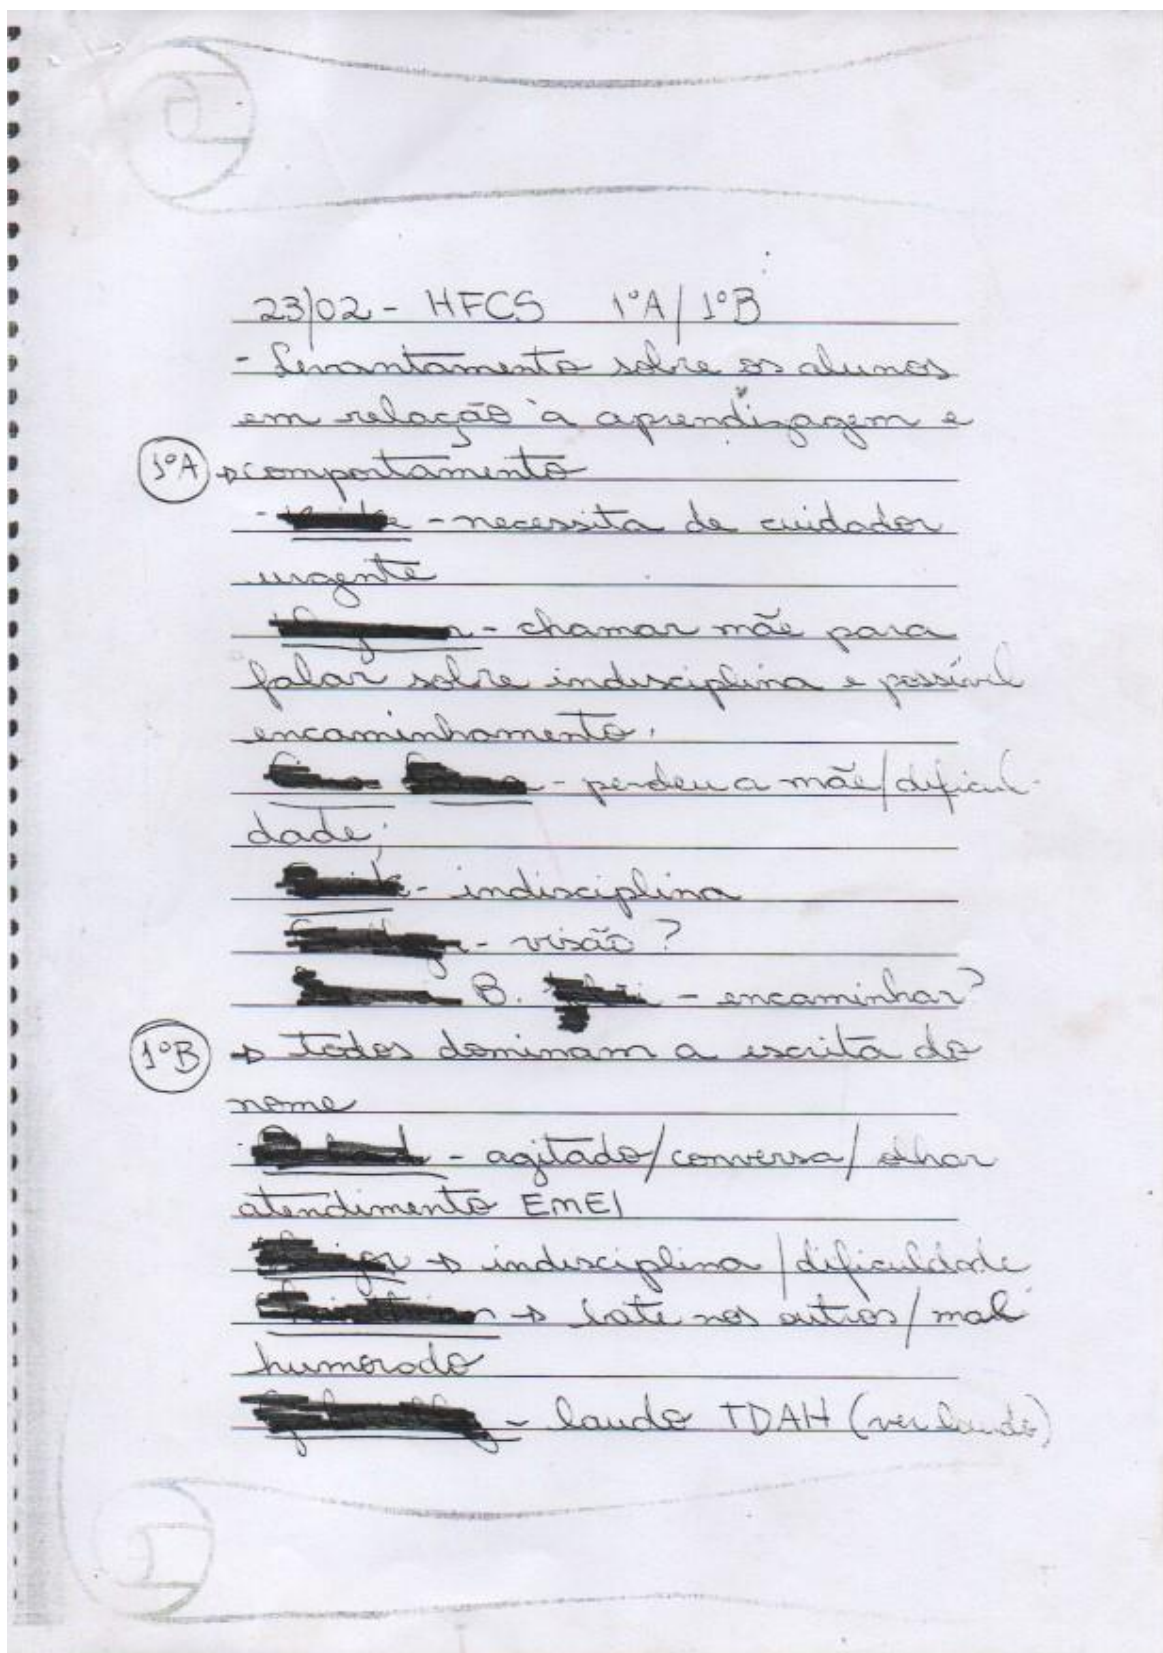 23/02 - HFCS 1ºA / 1ºB
- Levantamento sobre os alunos
em relação à aprendizagem e
1ºA → comportamento
- necessita de cuidador
urgente
- chamar mãe para
falar sobre indisciplina e possível
encaminhamento.
- perdeu a mãe/dificul-
dade;
- indisciplina
- visão?
B. - encaminhar?
1ºB → todos dominam a escrita do
nome
- agitado/conversa/olhar
atendimento EMEI
→ indisciplina/dificuldade
→ bate nos outros/mal
humorado
- laudo TDAH (ver laudo)